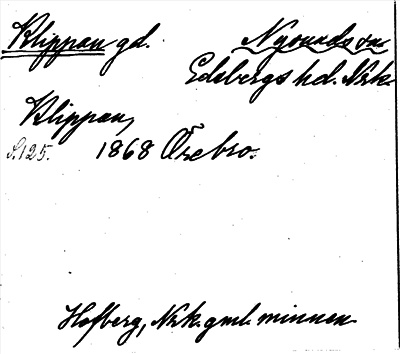 Klippan gd. Nysunds sn
Edsbergs hd. Nrk.
Klippan,
S.125. 1868 Örebro.
Hofberg, Nrk. gml. minnen